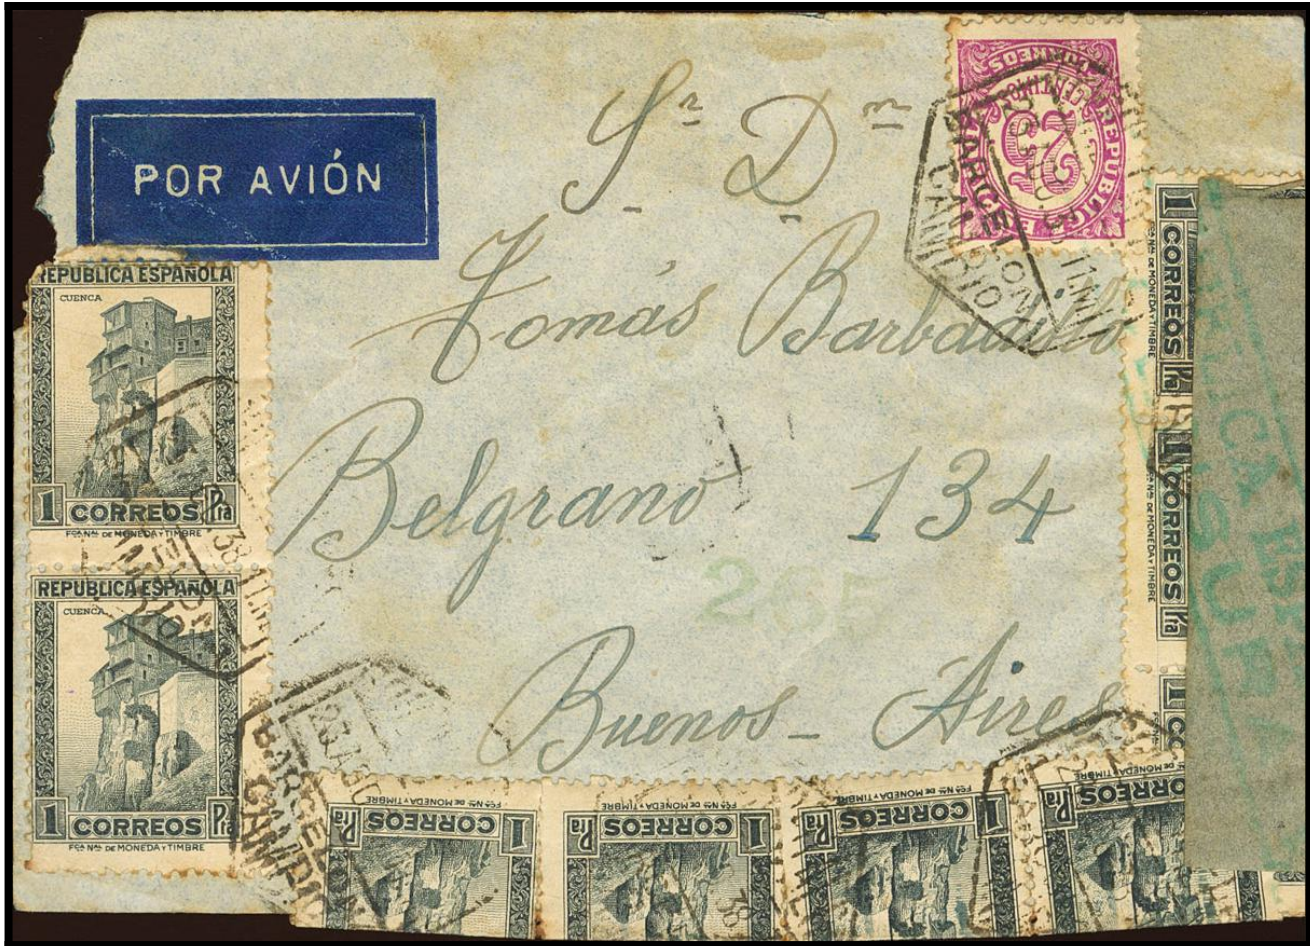 POR AVIÓN
Sr. Dn.
Tomás Barbadillo
Belgrano 134
265
Buenos - Aires
REPUBLICA ESPAÑOLA
CUENCA
1 CORREOS Pta
FCA. NAL. DE MONEDA Y TIMBRE
REPUBLICA ESPAÑOLA
CUENCA
1 CORREOS Pta
FCA. NAL. DE MONEDA Y TIMBRE
REPUBLICA
CORREOS
25
CENTIMOS
BARCELONA
CAMBIO
1 CORREOS Pta
FCA. NAL. DE MONEDA Y TIMBRE
1 CORREOS Pta
FCA. NAL. DE MONEDA Y TIMBRE
1 CO
1 CORREOS Pta
FCA. NAL. DE MONEDA Y TIMBRE
1 CORREOS Pta
FCA. NAL. DE MONEDA Y TIMBRE
1 CORREOS Pta
FCA. NAL. DE MONEDA Y TIMBRE
1 CORREOS Pta
FCA. NAL. DE MONEDA Y TIMBRE
BARCELONA
CAMBIO